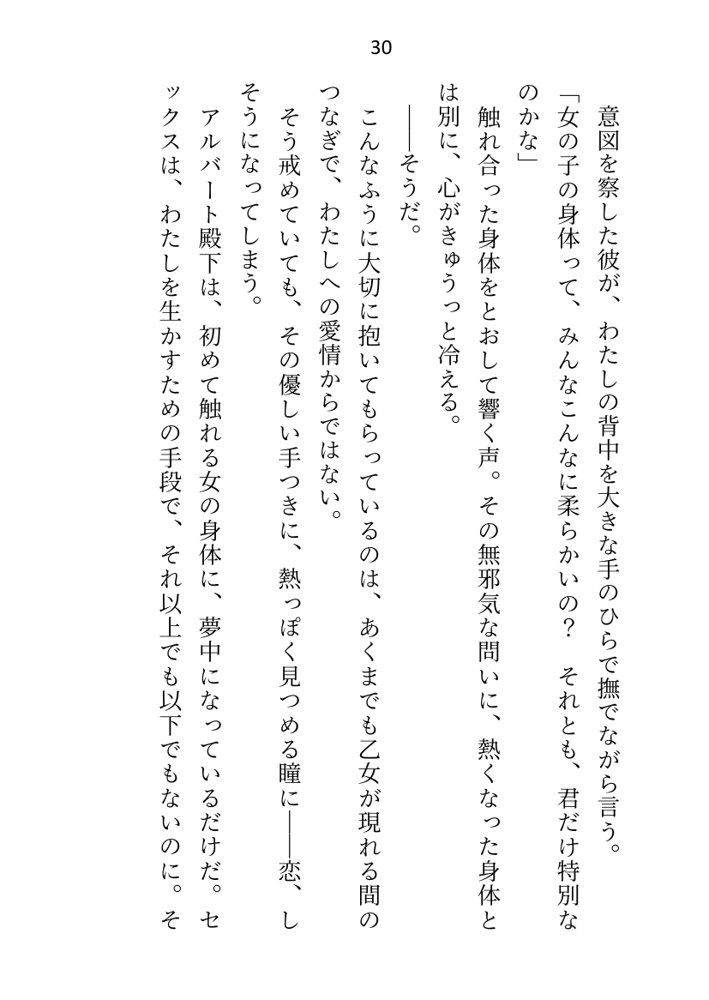 30
意図を察した彼が、わたしの背中を大きな手のひらで撫でながら言う。
「女の子の身体って、みんなこんなに柔らかいの？　それとも、君だけ特別な
のかな」
触れ合った身体をとおして響く声。その無邪気な問いに、熱くなった身体と
は別に、心がきゅうっと冷える。
――そうだ。
こんなふうに大切に抱いてもらっているのは、あくまでも乙女が現れる間の
つなぎで、わたしへの愛情からではない。
そう戒めていても、その優しい手つきに、熱っぽく見つめる瞳に――恋、し
そうになってしまう。
アルバート殿下は、初めて触れる女の身体に、夢中になっているだけだ。セ
ックスは、わたしを生かすための手段で、それ以上でも以下でもないのに。そ